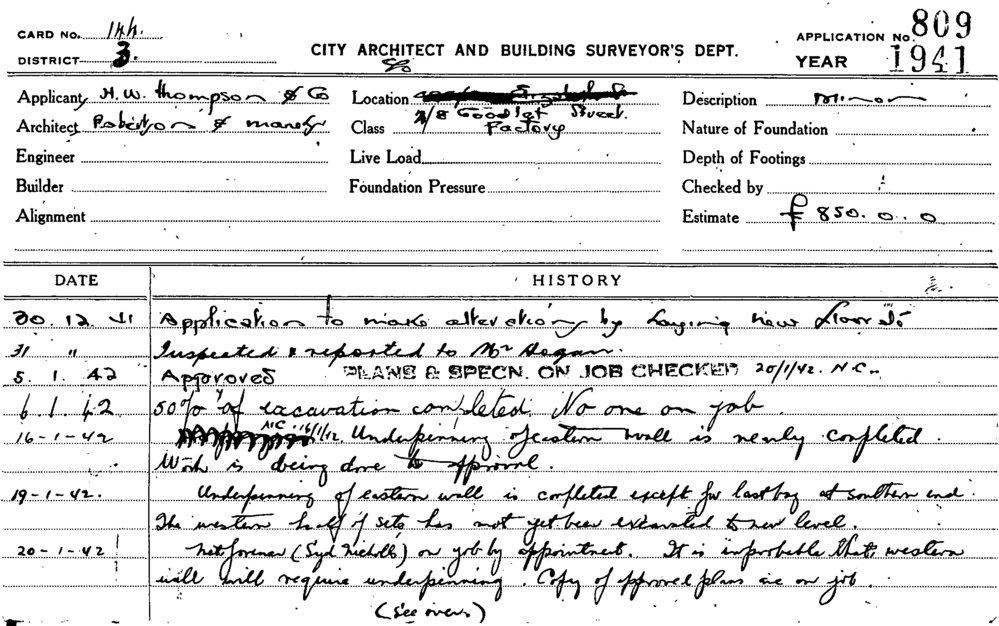 CARD No. 144.
APPLICATION No. 809
DISTRICT 3.
CITY ARCHITECT AND BUILDING SURVEYOR'S DEPT.
YEAR 1941
Applicant H. W. Thompson & Co
Location
Description Minor
Architect Robertson & Marks
7/8 Goodlet Street.
Class Factory
Nature of Foundation
Engineer
Live Load
Depth of Footings
Builder
Foundation Pressure
Checked by
Alignment
Estimate £ 850. 0. 0
DATE HISTORY
30. 12. 41 Application to make alterations by laying new floor &c
31 " Inspected & reported to Mr Hogan.
5. 1. 42 Approved PLANS & SPECN. ON JOB CHECKED 20/1/42. N.C.
6. 1. 42 50% of excavation completed. No one on job
16-1-42 N.C. 16/1/42. Underpinning of eastern wall is nearly completed.
Work is being done to approval.
19-1-42. Underpinning of eastern wall is completed except for last bay at southern end.
The western half of sets has not yet been excavated to new level.
20-1-42 Met foreman (Syd Nicholls) on job by appointment. It is improbable that western
wall will require underpinning. Copy of approved plans are on job.
(See over.)